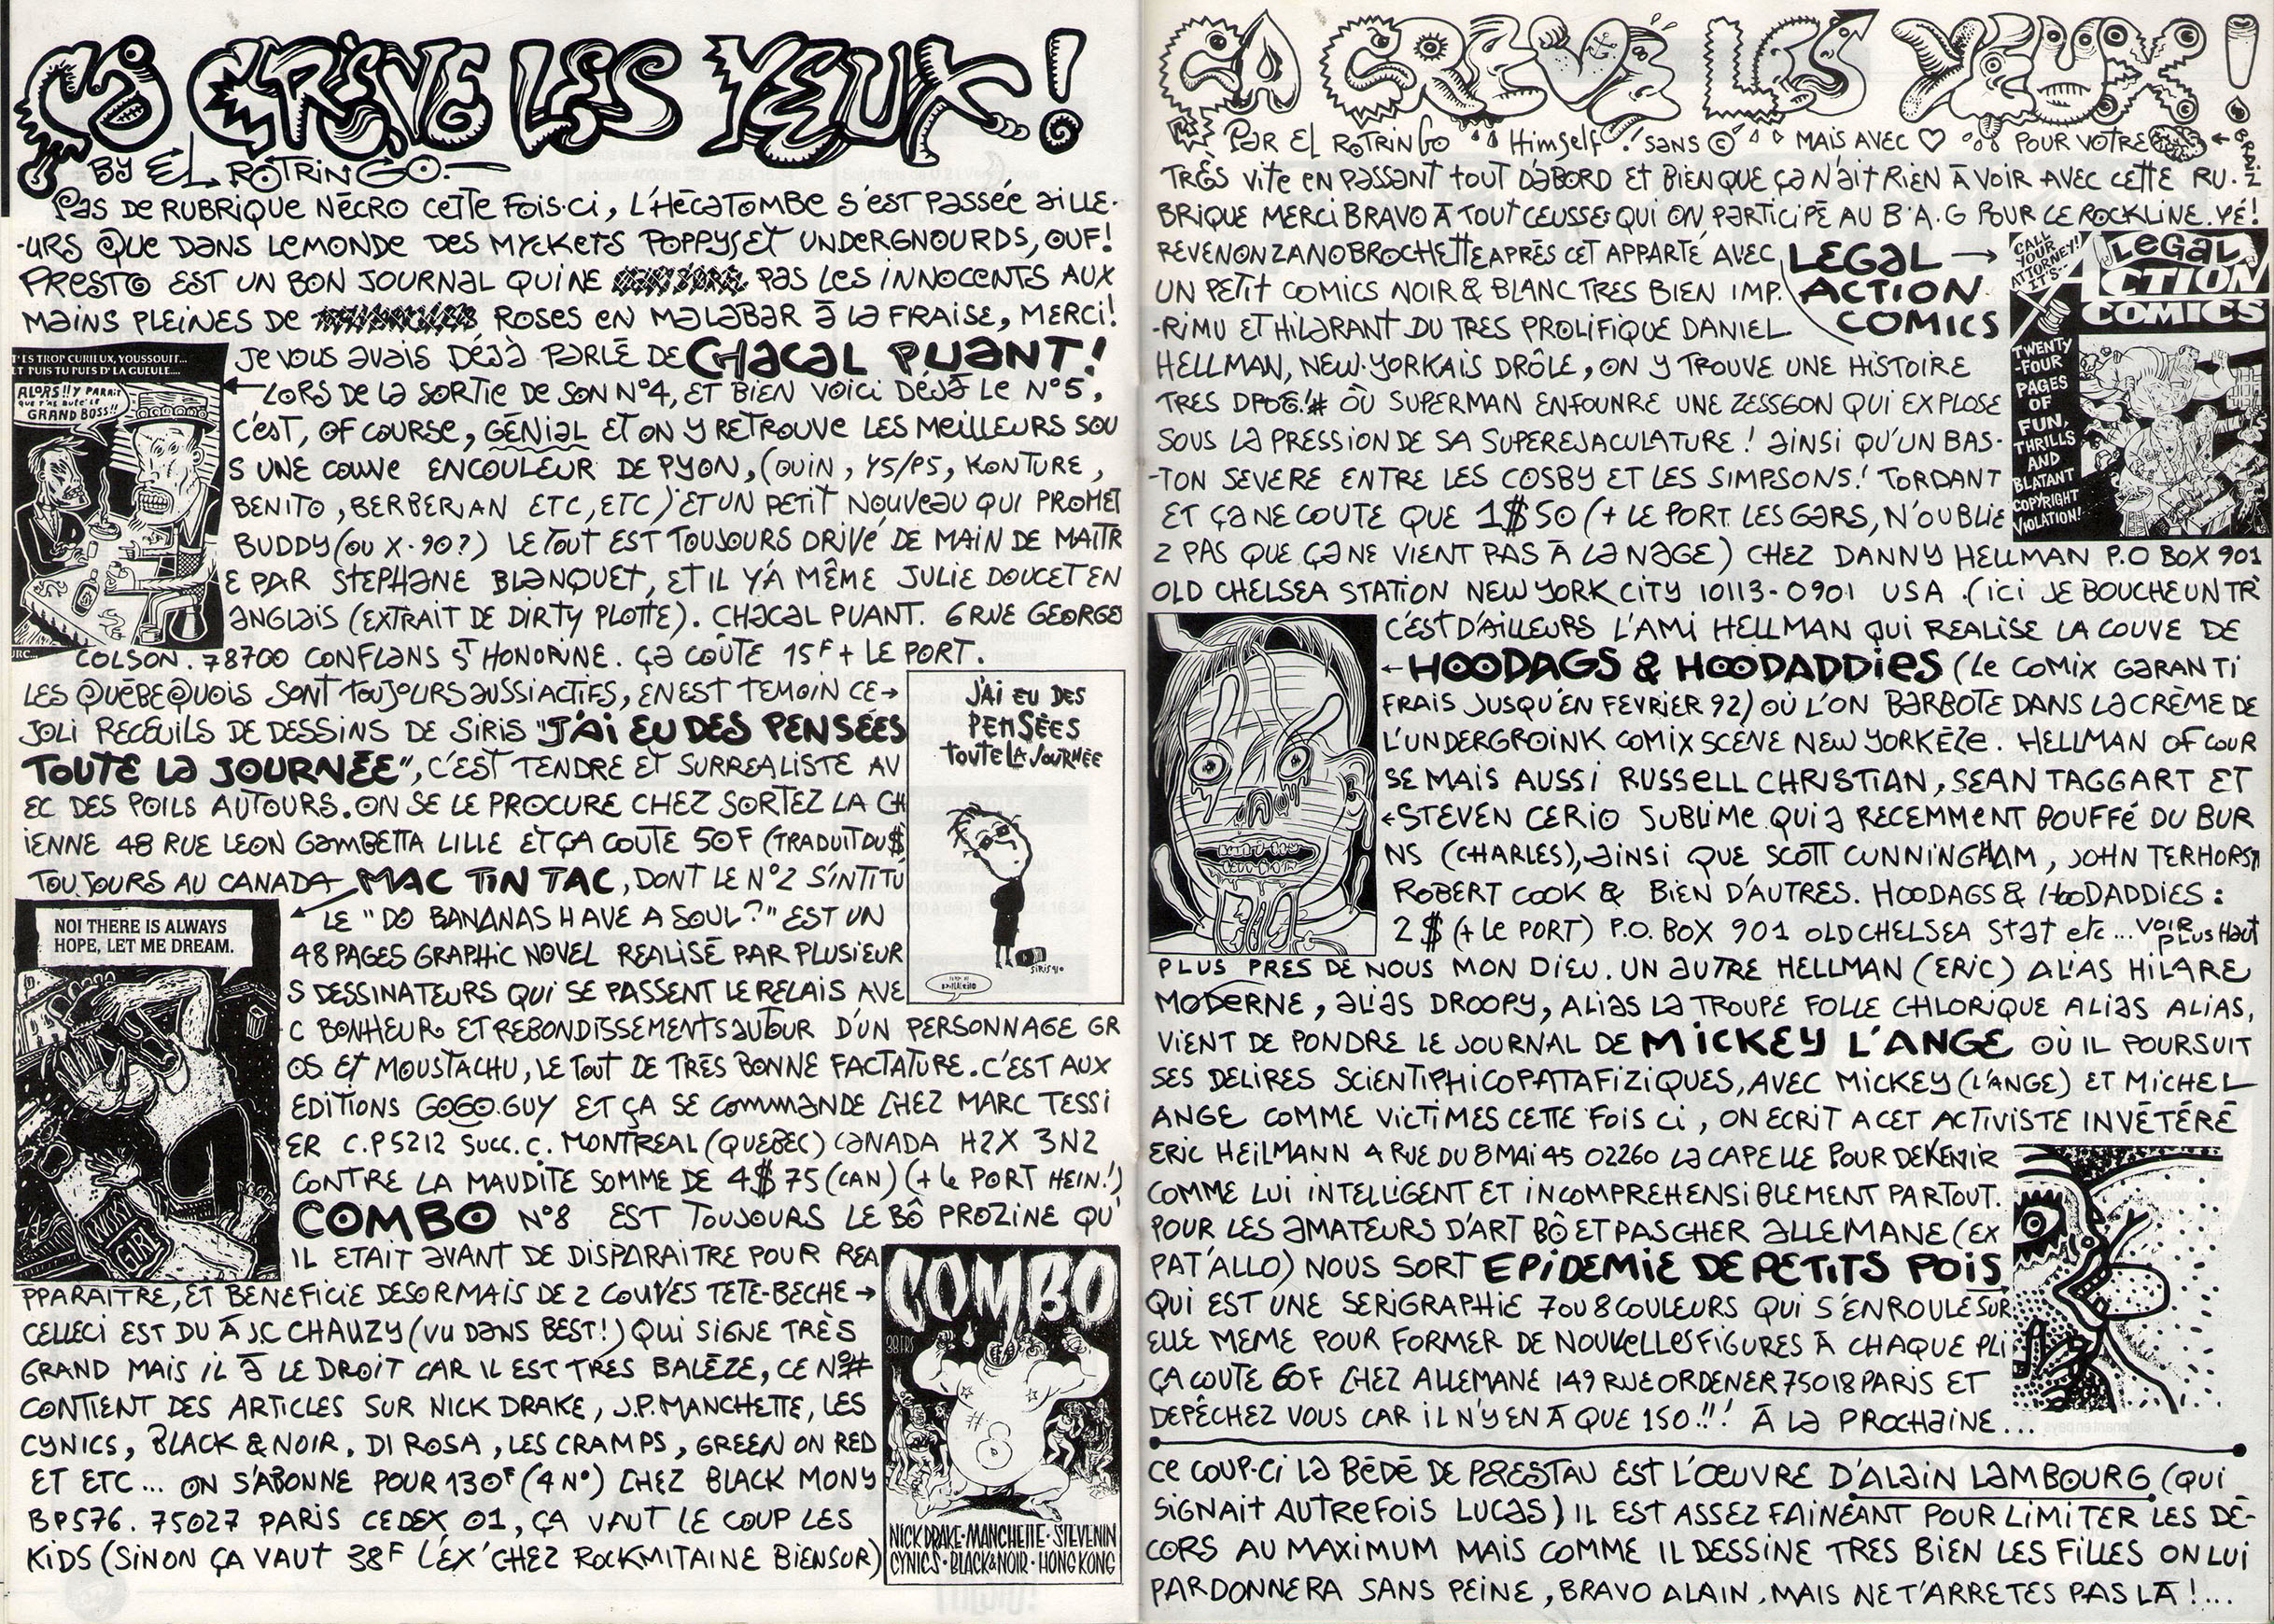 ÇA CRÈVE LES YEUX!
BY EL ROTRINGO.
PAS DE RUBRIQUE NÉCRO CETTE FOIS-CI, L'HÉCATOMBE S'EST PASSÉE AILLE-
-URS QUE DANS LE MONDE DES MYCKETS POPPYS ET UNDERGNOURDS, OUF!
PRESTO EST UN BON JOURNAL QUI NE PAS LES INNOCENTS AUX
MAINS PLEINES DE ROSES EN MALABAR À LA FRAISE, MERCI!
JE VOUS AVAIS DÉJÀ PARLÉ DE CHACAL PUANT!
LORS DE LA SORTIE DE SON N°4, ET BIEN VOICI DÉJÀ LE N°5,
C'EST, OF COURSE, GÉNIAL ET ON Y RETROUVE LES MEILLEURS SOU
S UNE COUVE EN COULEUR DE PYON, (OUIN, Y5/P5, KONTURE,
BENITO, BERBERIAN ETC, ETC) ET UN PETIT NOUVEAU QUI PROMET
BUDDY (OU X-90?) LE TOUT EST TOUJOURS DRIVÉ DE MAIN DE MAITR
E PAR STEPHANE BLANQUET, ET IL Y'A MÊME JULIE DOUCET EN
ANGLAIS (EXTRAIT DE DIRTY PLOTTE). CHACAL PUANT. 6 RUE GEORGES
COLSON. 78700 CONFLANS ST HONORINE. ÇA COÛTE 15F + LE PORT.
T'ES TROP CURIEUX, YOUSSOUF...
ET PUIS TU PUES D'LA GUEULE....
ALORS!! Y PARAIT
QUE T'AS BUTÉ LE
GRAND BOSS!!
LES QUÉBEQUOIS SONT TOUJOURS AUSSI ACTIFS, EN EST TEMOIN CE→
JOLI RECEUILS DE DESSINS DE SIRIS "J'AI EU DES PENSÉES
TOUTE LA JOURNÉE", C'EST TENDRE ET SURREALISTE AV
EC DES POILS AUTOURS. ON SE LE PROCURE CHEZ SORTEZ LA CH
IENNE 48 RUE LEON GAMBETTA LILLE ET ÇA COUTE 50F (TRADUIT DU $
TOUJOURS AU CANADA MAC TIN TAC, DONT LE N°2 S'INTITU
LE "DO BANANAS HAVE A SOUL?" EST UN
48 PAGES GRAPHIC NOVEL REALISÉ PAR PLUSIEUR
S DESSINATEURS QUI SE PASSENT LE RELAIS AVE
C BONHEUR ET REBONDISSEMENTS AUTOUR D'UN PERSONNAGE GR
OS ET MOUSTACHU, LE TOUT DE TRÈS BONNE FACTATURE. C'EST AUX
EDITIONS GOGO.GUY ET ÇA SE COMMANDE CHEZ MARC TESSI
ER C.P 5212 SUCC. C. MONTREAL (QUEBEC) CANADA H2X 3N2
CONTRE LA MAUDITE SOMME DE 4$75 (CAN) (+ LE PORT HEIN!)
J'AI EU DES
PENSÉES
TOUTE LA JOURNÉE
SIRIS 90
NO! THERE IS ALWAYS
HOPE, LET ME DREAM.
NOISY
GIRL
COMBO N°8 EST TOUJOURS LE BÔ PROZINE QU'
IL ETAIT AVANT DE DISPARAITRE POUR REA
PPARAITRE, ET BENEFICIE DESORMAIS DE 2 COUVES TETE-BECHE→
CELLECI EST DU À J.C CHAUZY (VU DANS BEST!) QUI SIGNE TRÈS
GRAND MAIS IL À LE DROIT CAR IL EST TRÈS BALÈZE, CE N°#
CONTIENT DES ARTICLES SUR NICK DRAKE, J.P. MANCHETTE, LES
CYNICS, BLACK & NOIR, DI ROSA, LES CRAMPS, GREEN ON RED
ET ETC... ON S'ABONNE POUR 130F (4 N°) CHEZ BLACK MONY
BP576. 75027 PARIS CEDEX 01, ÇA VAUT LE COUP LES
KIDS (SINON ÇA VAUT 38F L'EX' CHEZ ROCKMITAINE BIENSUR)
COMBO
38FRS
#8
NICK DRAKE·MANCHETTE·STEVENIN
CYNICS·BLACK&NOIR·HONG KONG
ÇA CREVE LES YEUX!
PAR EL ROTRINGO Himself! SANS © MAIS AVEC ♡ POUR VOTRE ← BRAIN
TRÈS VITE EN PASSANT TOUT D'ABORD ET BIEN QUE ÇA N'AIT RIEN À VOIR AVEC CETTE RU-
BRIQUE MERCI BRAVO À TOUT CEUSSES QUI ON PARTICIPÉ AU B.A.G POUR LE ROCKLINE. YÉ!
REVENONZANOBROCHETTE APRÈS CET APPARTÉ, AVEC LEGAL →
UN PETIT COMICS NOIR & BLANC TRES BIEN IMP. ACTION
-RIMU ET HILARANT DU TRES PROLIFIQUE DANIEL COMICS
HELLMAN, NEW-YORKAIS DRÔLE, ON Y TROUVE UNE HISTOIRE
TRES DPOG!# OÙ SUPERMAN ENFOUNRE UNE ZESSGON QUI EXPLOSE
SOUS LA PRESSION DE SA SUPEREJACULATURE! AINSI QU'UN BAS-
-TON SEVERE ENTRE LES COSBY ET LES SIMPSONS! TORDANT
ET ÇA NE COUTE QUE 1$50 (+ LE PORT LES GARS, N'OUBLIE
Z PAS QUE ÇA NE VIENT PAS À LA NAGE) CHEZ DANNY HELLMAN P.O BOX 901
OLD CHELSEA STATION NEW YORK CITY 10113-0901 USA. (ICI JE BOUCHE UN TR
CALL
YOUR
ATTORNEY!
IT'S--
LEGAL
ACTION
COMICS
TWENTY
-FOUR
PAGES
OF
FUN,
THRILLS
AND
BLATANT
COPYRIGHT
VIOLATION!
C'EST D'AILLEURS L'AMI HELLMAN QUI REALISE LA COUVE DE
←HOODAGS & HOODADDIES (LE COMIX GARANTI
FRAIS JUSQU'EN FEVRIER 92) OÙ L'ON BARBOTE DANS LA CRÈME DE
L'UNDERGROINK COMIX SCENE NEW YORKÈZE. HELLMAN OF COUR
SE MAIS AUSSI RUSSELL CHRISTIAN, SEAN TAGGART ET
←STEVEN CERIO SUBLIME QUI A RECEMMENT BOUFFÉ DU BUR
NS (CHARLES), AINSI QUE SCOTT CUNNINGHAM, JOHN TERHORST
ROBERT COOK & BIEN D'AUTRES. HOODAGS & HOODADDIES:
2$ (+ LE PORT) P.O. BOX 901 OLD CHELSEA STAT etc... VOIR PLUS HAUT
PLUS PRES DE NOUS MON DIEU. UN AUTRE HELLMAN (ERIC) ALIAS HILARE
MODERNE, ALIAS DROOPY, ALIAS LA TROUPE FOLLE CHLORIQUE ALIAS ALIAS,
VIENT DE PONDRE LE JOURNAL DE MICKEY L'ANGE OÙ IL POURSUIT
SES DELIRES SCIENTIPHICOPATAFIZIQUES, AVEC MICKEY (L'ANGE) ET MICHEL
ANGE COMME VICTIMES CETTE FOIS CI, ON ECRIT A CET ACTIVISTE INVÉTÉRÉ
ERIC HEILMANN 4 RUE DU 8 MAI 45 02260 LA CAPELLE POUR DEVENIR
COMME LUI INTELLIGENT ET INCOMPREHENSIBLEMENT PARTOUT.
POUR LES AMATEURS D'ART BÔ ET PAS CHER ALLEMANE (EX
PAT'ALLO) NOUS SORT EPIDEMIE DE PETITS POIS
QUI EST UNE SERIGRAPHIE 7 OU 8 COULEURS QUI S'ENROULE SUR
ELLE MEME POUR FORMER DE NOUVELLES FIGURES À CHAQUE PLI
ÇA COUTE 60F CHEZ ALLEMANE 149 RUE ORDENER 75018 PARIS ET
DEPÊCHEZ VOUS CAR IL N'Y EN A QUE 150!!! À LA PROCHAINE...
CE COUP-CI LA BÉDÉ DE PRESTAU EST L'ŒUVRE D'ALAIN LAMBOURG (QUI
SIGNAIT AUTREFOIS LUCAS) IL EST ASSEZ FAINÉANT POUR LIMITER LES DÉ-
CORS AU MAXIMUM MAIS COMME IL DESSINE TRES BIEN LES FILLES ON LUI
PARDONNERA SANS PEINE, BRAVO ALAIN, MAIS NE T'ARRETES PAS LÀ!...